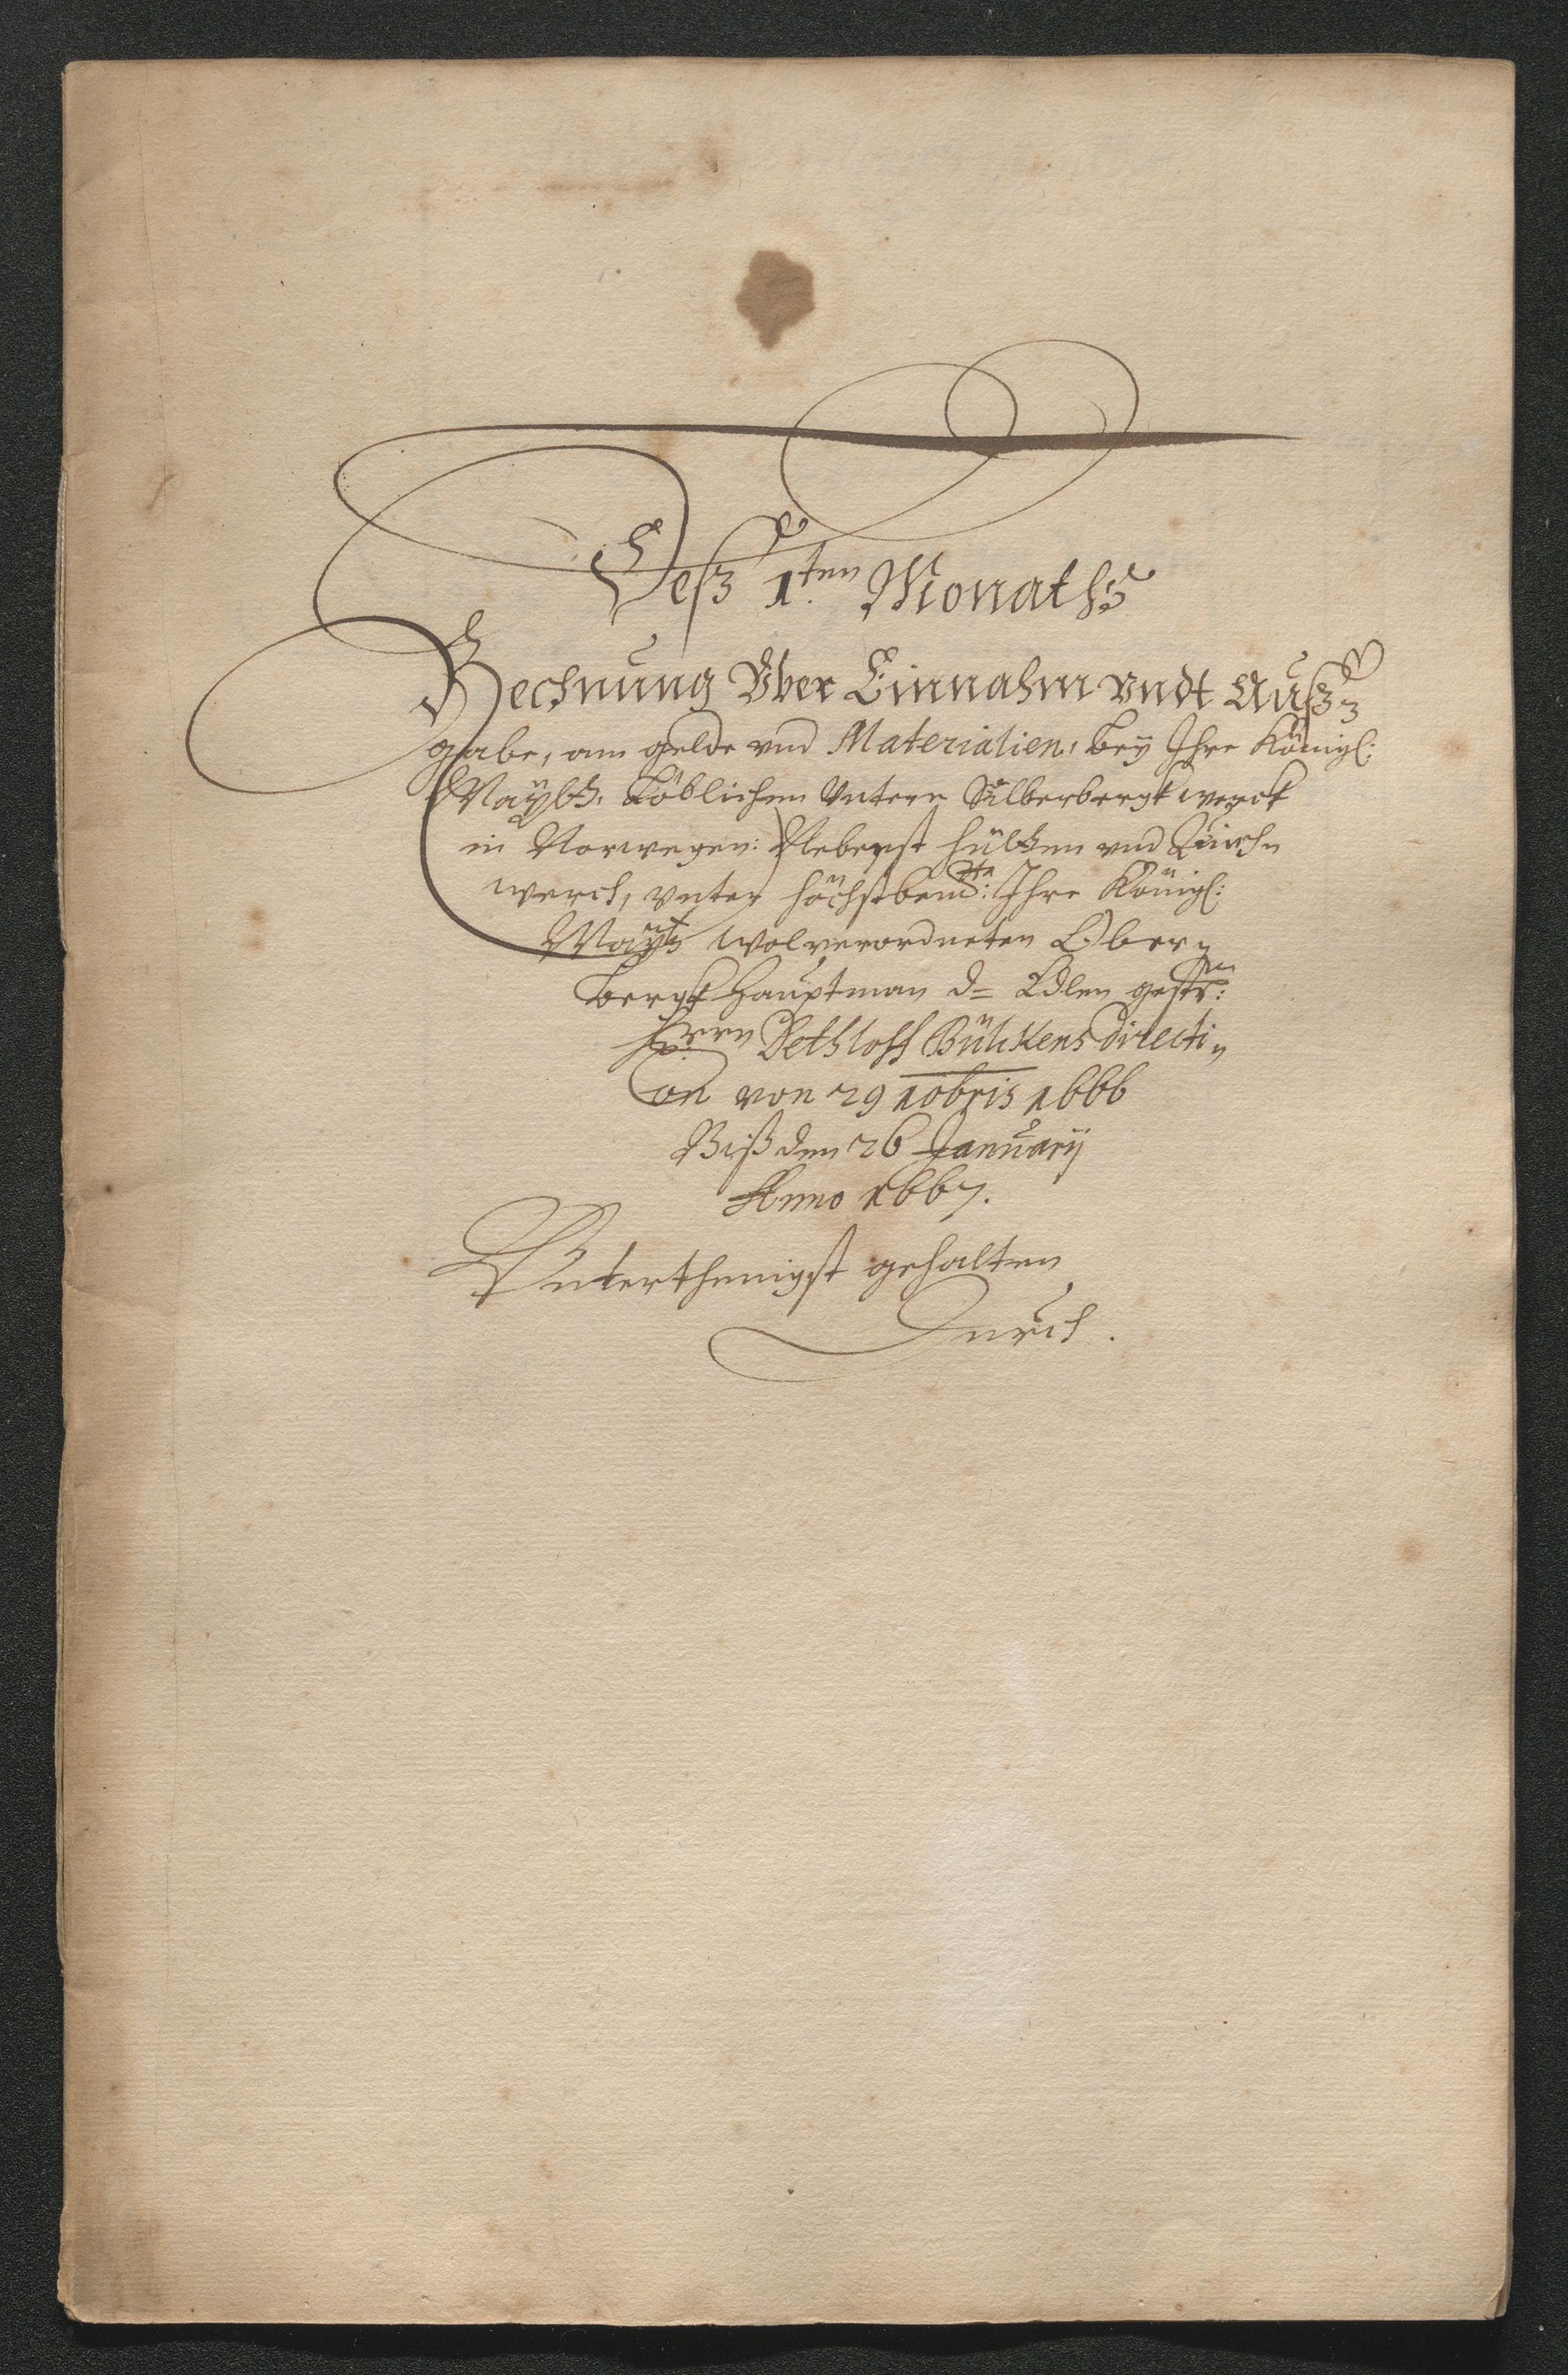 Deß 1.ten Monaths
Rechnung Vber Einnahm vndt Auß-
gabe, am gelde vnd Materialien, bey Ihre Königl:
Maÿltt. Löblichen Untern Silberbergkwerck
in Norwegen: Nebenst hütten vnd
werck, vnter höchstbemelte: Ihre Königl:
Maÿtt wolverordneten Ober-
bergk Hauptman d= Edlen gestr:
Herrn Dethloff directi-
on von 29 10bris 1666
Biß den 26 January
Anno 1667.
Vnterthenigst gehalten
Durch.